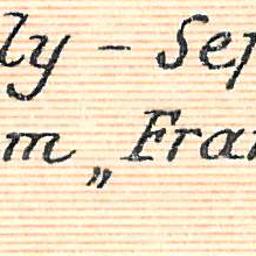 ly - Sep
m „ Fran